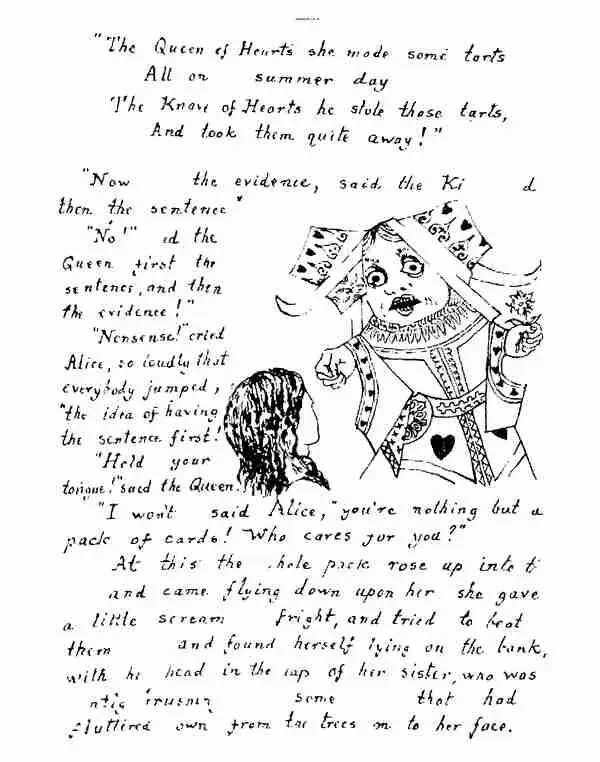 "The Queen of Hearts she made some tarts
All on summer day
The Knave of Hearts he stole those tarts,
And took them quite away!"
"Now the evidence, said the Ki d
then the sentence"
"No!" ed the
Queen first the
sentence, and then
the evidence!"
"Nonsense!" cried
Alice, so loudly that
everybody jumped,
"the idea of having
the sentence first!
"Hold your
tongue!" said the Queen.
"I won't said Alice, "you're nothing but a
pack of cards! Who cares for you?"
At this the hole pack rose up into t
and came flying down upon her she gave
a little scream fright, and tried to beat
them and found herself lying on the bank,
with he head in the lap of her sister, who was
some that had
fluttered own from the trees on to her face.